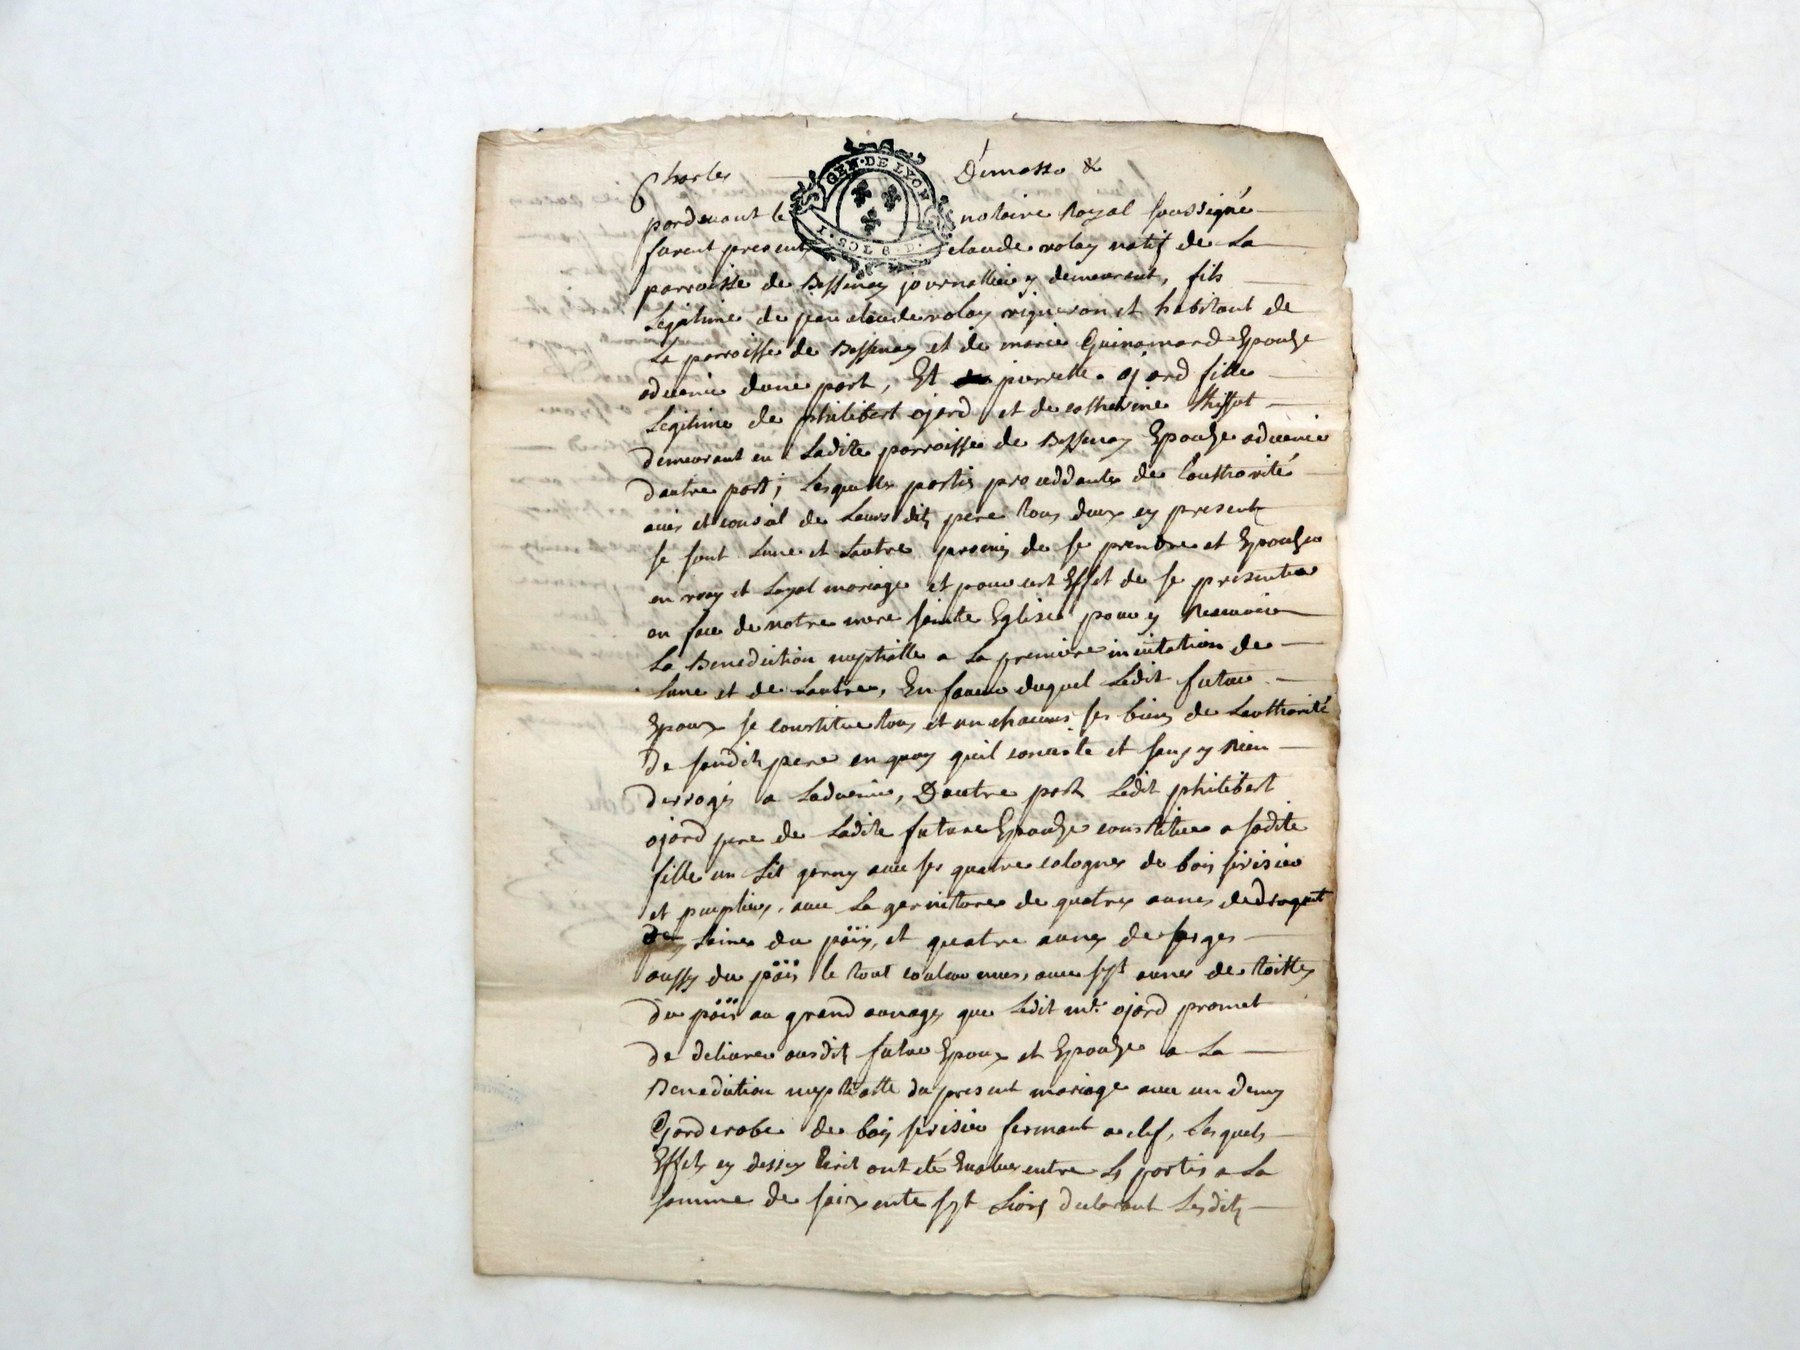 Charles Demasso &
GEN · DE LYON
1 · SOL 8 D ·
pardevant le notaire Royal soussigné
furent presents claude volay natif de La
parroisse de Bessenay journallier y demeurant, fils
Legitime de jean claude volay vigneron et habitant de
La parroisse de Bessenay et de marie Guinamard Epouze
advenir dune part, Et pierrette ojard fille
Legitime de philibert ojard et de catherine
demeurant en Ladite parroisse de Bessenay Epouze advenir
dautre part; Lesquelles parties proceddantes de Lauthorité
avis et conseil de Leurs dits pere tous deux cy presents
se sont Lune et Lautre promis de se prendre et Epouzer
en vray et Loyal mariage et pour cet Effet de se presenter
en face de notre mere sainte Eglise pour y Recevoir
La Benediction nuptialle a La premiere invitation de
Lune et de Lautre, En faveur duquel Ledit futur
Epoux se constitue tous et un chacuns ses biens de Lauthorité
de sondit pere en quoy quil consiste et sans y Rien
derroger a Ladvenir, Dautre part Ledit philibert
ojard pere de Ladite future Epouze constitue a sadite
fille un Lit garny avec ses quatre colognes de bois serisier
et puplier, avec La garniture de quatres aunes de droguet
de Laine du päis, et quatre aunes de sarges
aussy du päis le tout couleur avec sept aunes de toilles
du päis au grand aunages que Ledit ojard promet
de delivrer ausdits futur Epoux et Epouze a La
Benediction nuptialle du present mariage avec un demy
Garderobe de bois serisier fermant a clef, Lesquels
Effets cy dessus ont été Evaluer entre Les parties a La
somme de soixente sept Livres declarant Lesdits